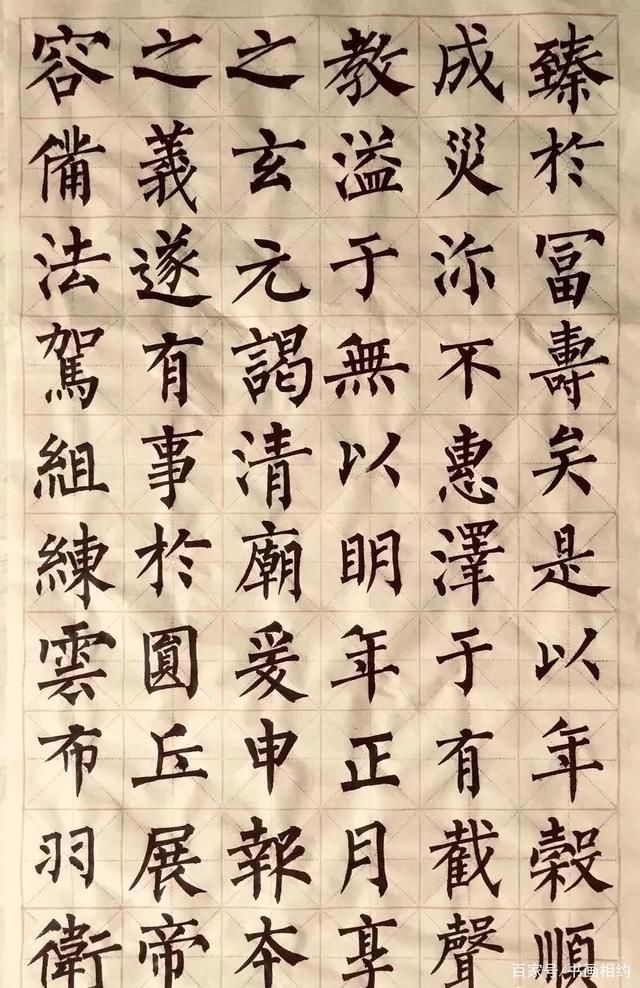 臻於冨壽矣是以年穀順
成災沵不惠澤于有截聲
教溢于無以明年正月享
之玄元謁清廟爰申報本
之義遂有事於圓丘展帝
容備法駕組練雲布羽衛
百家号/书画相约